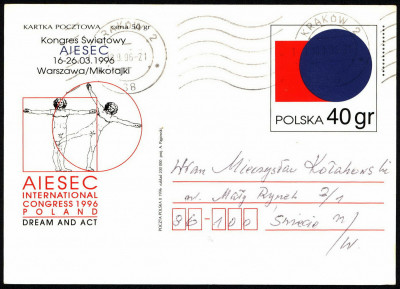 KARTKA POCZTOWA cena 50 gr
Kongres Światowy
AIESEC
16-26.03.1996
Warszawa/Mikołajki
KRAKÓW 2
KRAKÓW 2
POLSKA 40 gr
AIESEC
INTERNATIONAL
CONGRESS 1996
POLAND
DREAM AND ACT
POCZTA POLSKA
WPan Mieczysław Kołakowski
Mały Rynek 7/1
96-100
n/W